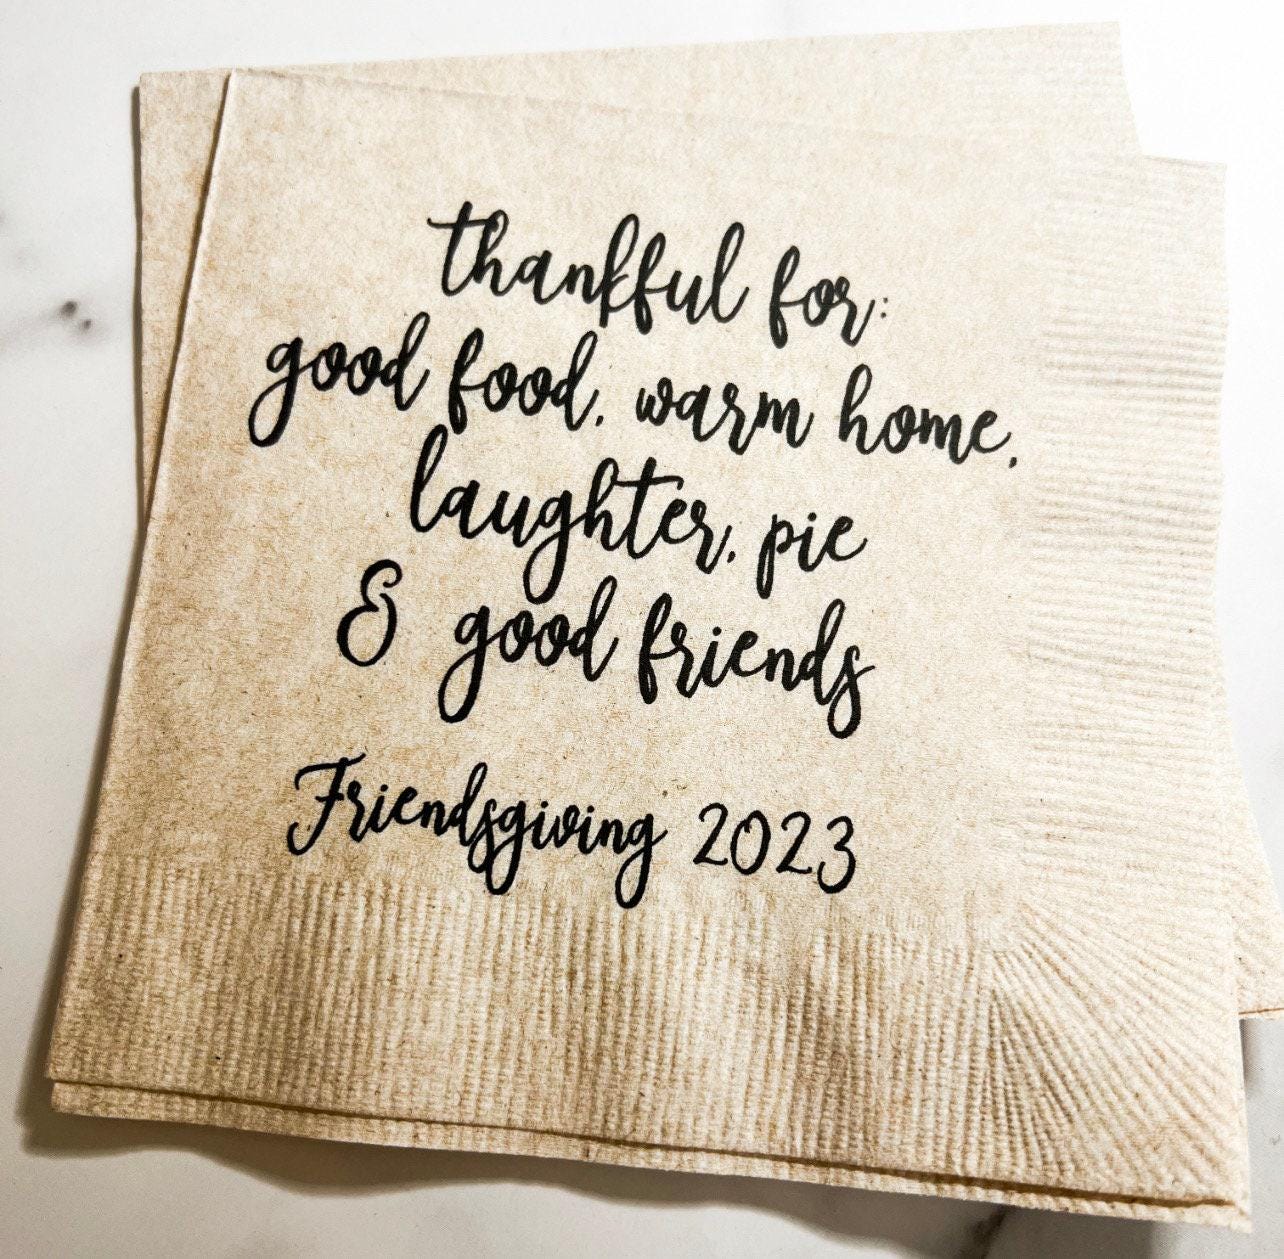 thankful for:
good food, warm home,
laughter, pie
& good friends
Friendsgiving 2023